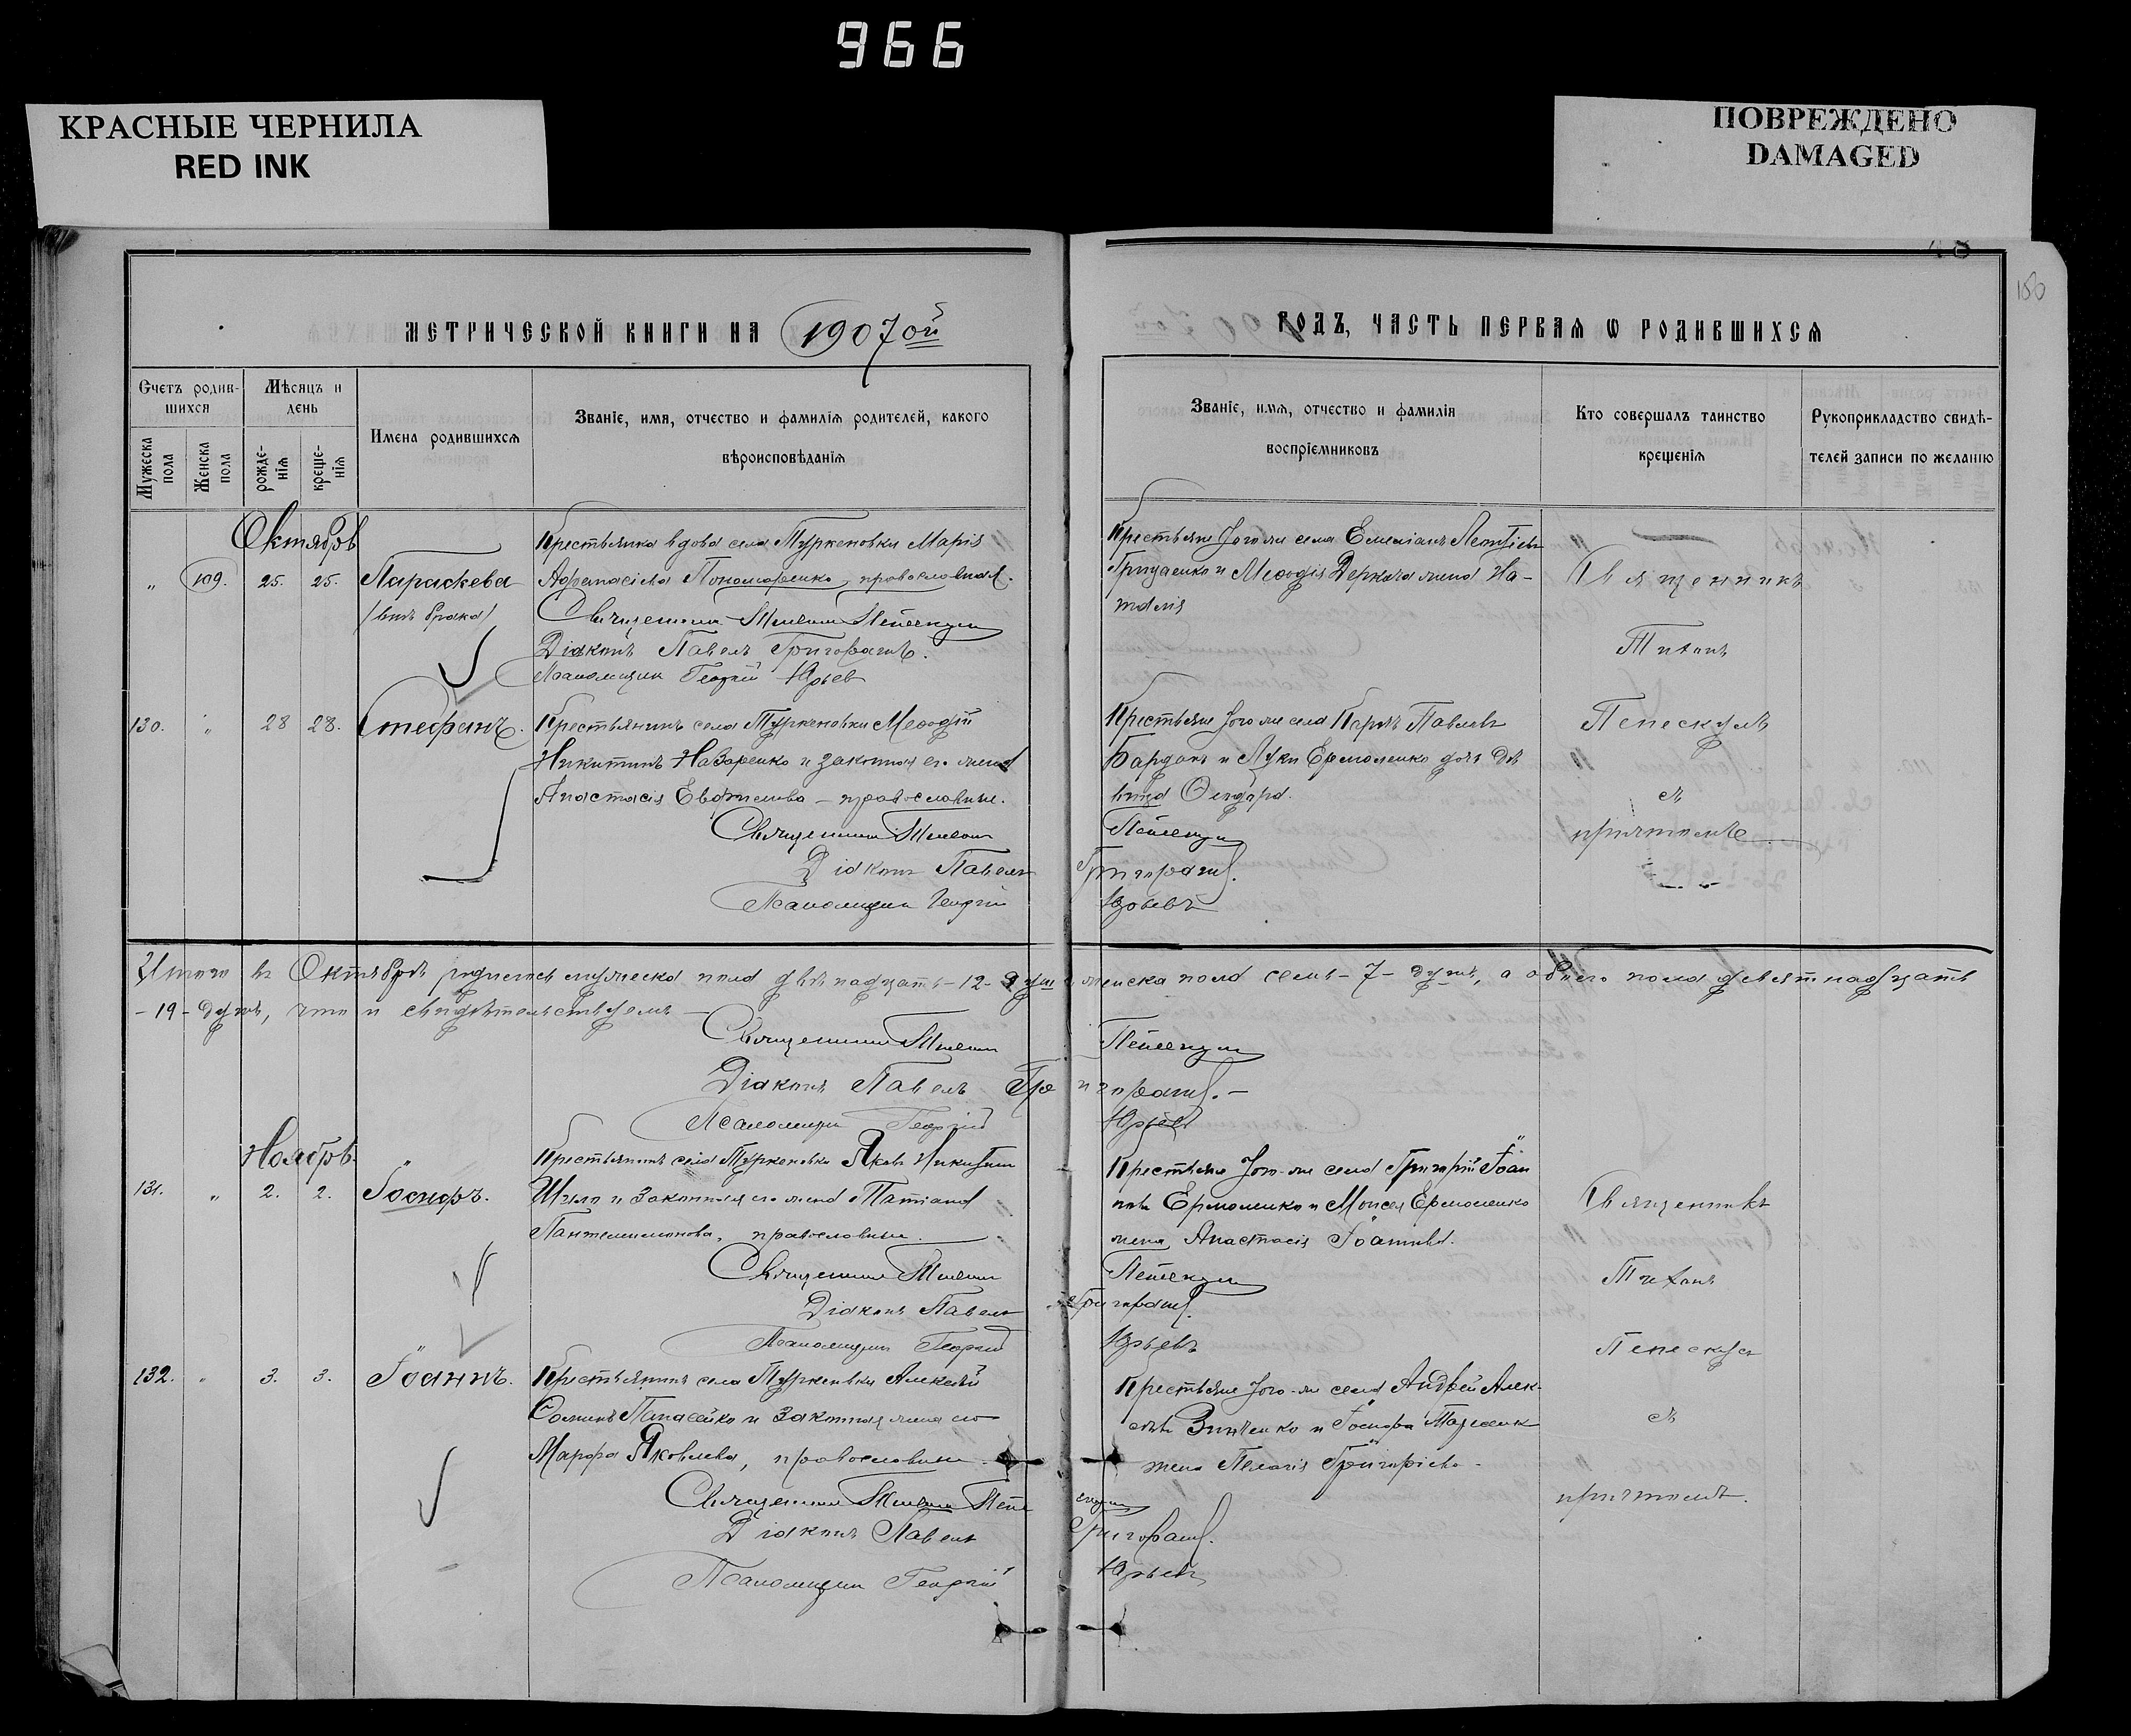 966
КРАСНЫЕ ЧЕРНИЛА
RED INK
ПОВРЕЖДЕНО
DAMAGED
180
МЕТРИЧЕСКОЙ КНИГИ НА 1907ой
ГОДЪ, ЧАСТЬ ПЕРВАЯ Ѡ РОДИВШИХСЯ
Счетъ родив-
шихся
Мужеска пола
Женска пола
Мѣсяцъ и
день
рожде-
нія
креще-
нія
Имена родившихся
Званіе, имя, отчество и фамилія родителей, какого
вѣроисповѣданія
Званіе, имя, отчество и фамилія
воспріемниковъ
Кто совершалъ таинство
крещенія
Рукоприкладство свидѣ-
телей записи по желанію
Октябрь
„ 109. 25. 25. Параскева
(внѣ брака)
Крестьянка вдова села Туркеновки Марія
Афанасіева Пономаренко, православная.
Священникъ Тихонъ Пепескулъ
Діаконъ Павелъ Григорашъ.
Псаломщикъ Георгій Юрьев
Крестьяне того-же села Емеліанъ Леонтіевъ
Гриценко и Меѳодія Деркача жена На-
талія
Священникъ
Тихонъ
130. „ 28 28. Стефанъ.
Крестьянинъ села Туркеновки Меѳодій
Никитинъ Назаренко и законная его жена
Анастасія Евфимова – православные.
Священникъ Тихонъ Пепескулъ
Діаконъ Павелъ Григорашъ.
Псаломщикъ Георгій Юрьевъ
Крестьяне того же села Карпъ Павловъ
и Луки Ермоленко дочь дѣ
вица Ѳеодора.
Пепескулъ
съ
причтомъ
Итого въ Октябрѣ родилось мужеска пола двѣнадцать – 12 – душъ женска пола семь – 7 – душъ, а обоего пола девятнадцать
– 19 – душъ, что и свидѣтельствуемъ –
Священникъ Тихонъ Пепескулъ
Діаконъ Павелъ Григорашъ. –
Псаломщикъ Георгій Юрьев
Ноябрь
131. „ 2. 2. Іосифъ.
Крестьянинъ села Туркеновки Яковъ Никитин
Шило и законная его жена Татіана
Пантелеимонова, православные.
Священникъ Тихонъ Пепескулъ
Діаконъ Павелъ Григорашъ.
Псаломщикъ Георгій Юрьевъ
Крестьяне того-же села Григорій Іоан
новъ Ермоленко и Моисея Ермоленко
жена Анастасія Іоаннова.
Священникъ
Тихонъ
Пепескулъ
132. „ 3. 3. Іоаннъ.
Крестьянинъ села Туркеновки Алексѣй
Ѳоминъ и законная жена его
Марфа Яковлева, православные
Священникъ Тихонъ Пепескулъ
Діаконъ Павелъ Григорашъ.
Псаломщикъ Георгій Юрьевъ
Крестьяне того-же села Андрей Алек-
сѣевъ Зинченко и Іосифа
жена Пелагія Григоріева.
съ
причтомъ.